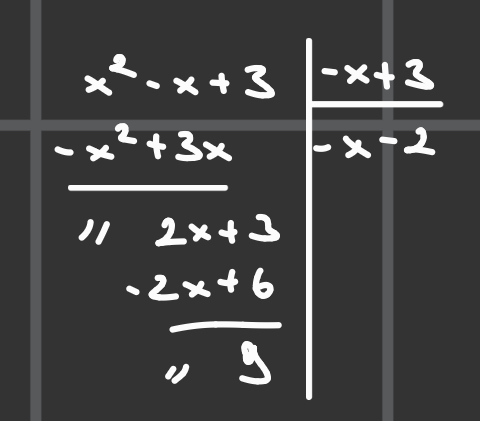 x² - x + 3 | -x + 3
-x² + 3x | -x - 2
〃 2x + 3
-2x + 6
〃 9